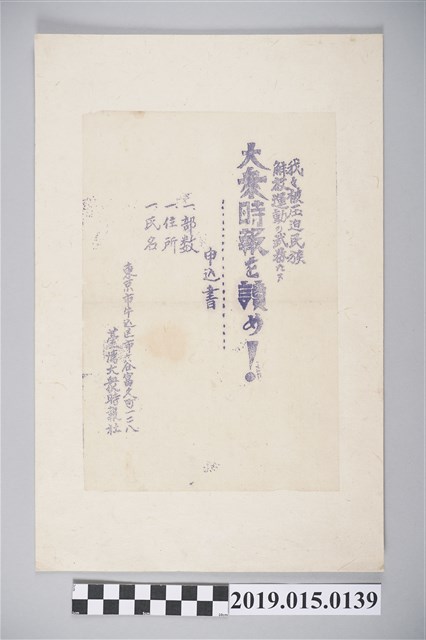 我々被圧迫民族
解放運動の武器たる
大衆時報を讀め!
申込書
一部数
一住所
一氏名
東京市牛込区市ヶ谷富久町一二八
臺湾大衆時報社
2019.015.0139